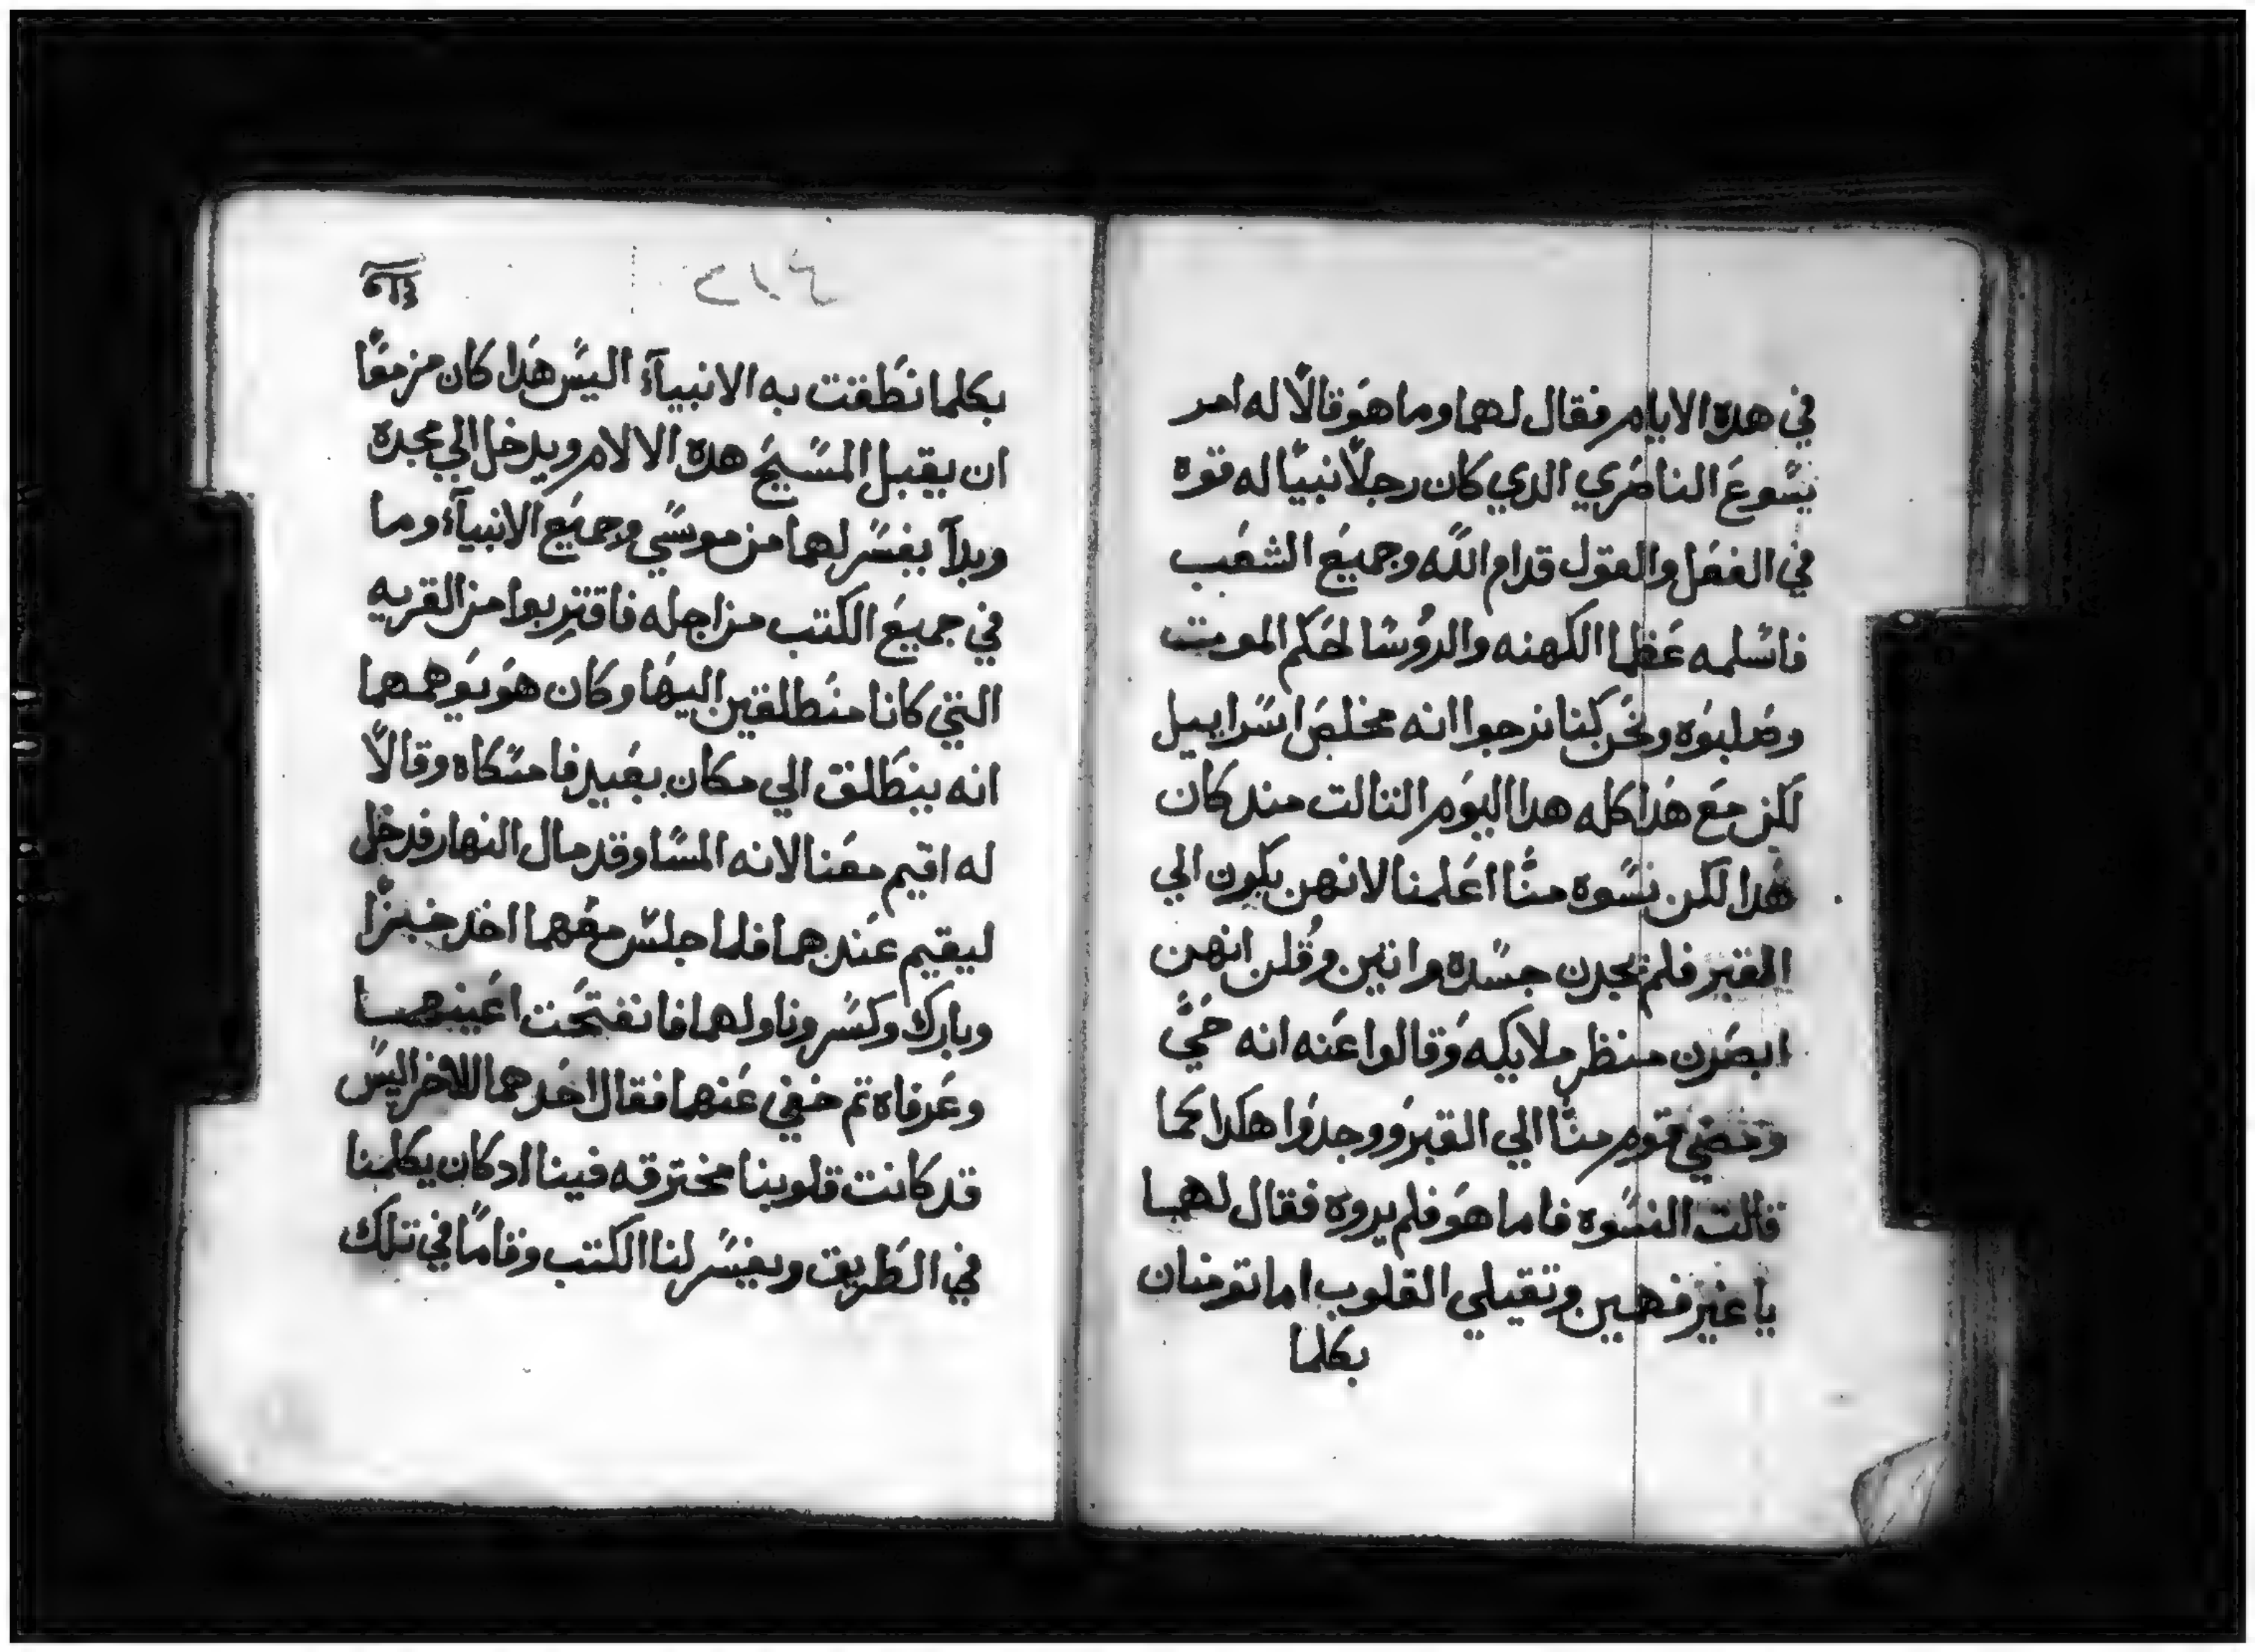 في هده الايام فقال لهما وما هو قالًا له امر
يسوع الناصري الدي كان رجلًا نبيًا له قوه
في الفعل والقول قدام الله وجميع الشعب
فاسلمه عظما الكهنه والروسا لحكم الموت
وصلبوه ونحن كنا نرجوا انه مخلص اسراييل
لكن مع هدا كله هدا اليوم التالت مند كان
هدا لكن نسوه منا اعلمنا لانهن بكرن الي
القبر فلم يجدن جسده واتين وقلن انهن
ابصرن منظر ملايكه وقالوا عنه انه حيّ
ومضي قوم منا الي القبر ووجدوا هكدا كما
قالت النسوه فاما هو فلم يروه فقال لهما
يا غير فهمين وتقيلي القلوب اما تومنان
بكلما
بكلما نطقت به الانبيآء اليس هدا كان مزمعًا
ان يقبل المسيح هده الالام ويدخل الي مجده
وبدآ يفسر لهما من موسي وجميع الانبيآء وما
في جميع الكتب من اجله فاقتربوا من القريه
التي كانا منطلقين اليها وكان هو يوهمهما
انه ينطلق الي مكان بعيد فامسكاه وقالًا
له اقيم معنا لانه المسا وقد مال النهار فدخل
ليقيم عندهما فلما جلس معهما اخد خبزًا
وبارك وكسر وناولهما فانفتحت اعينهما
وعرفاه تم خفي عنهما فقال احدهما للاخر اليس
قد كانت قلوبنا محترقه فينا اد كان يكلمنا
في الطريق ويفسر لنا الكتب وقامًا في تلك